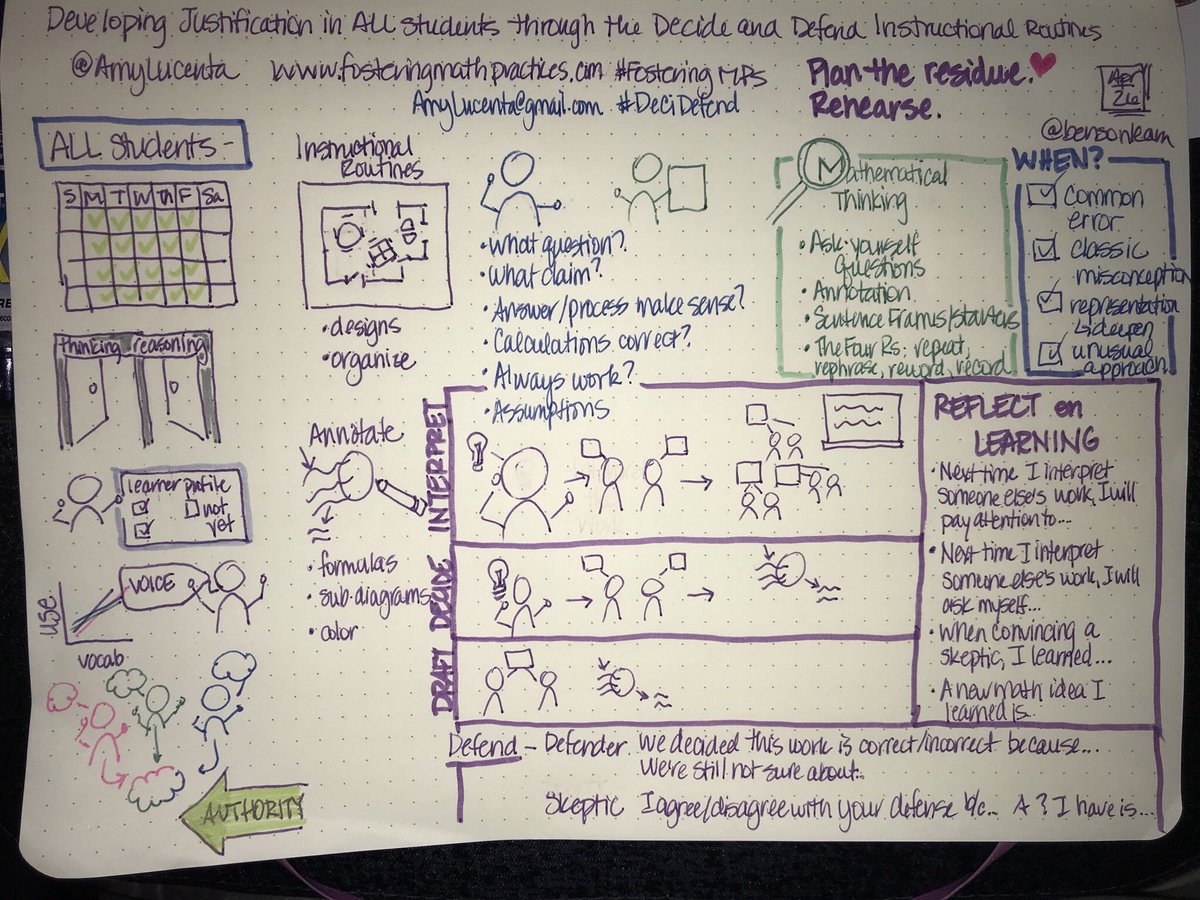 Developing Justification in ALL Students through the Decide and Defend Instructional Routines
@AmyLucenta www.fosteringmathpractices.com #FosteringMPs
AmyLucenta@gmail.com #DeciDefend
Plan the residue.
Rehearse.
Apr
26
@bensonlearn
ALL Students -
S M T W th F Sa
thinking reasoning
learner profile
not
yet
VOICE
use
vocab
AUTHORITY
Instructional
Routines
• designs
• organize
Annotate
• formulas
• sub-diagrams
• color
• What question?
• What claim?
• Answer/process make sense?
• Calculations correct?
• Always work?
• Assumptions
Mathematical
Thinking
• Ask-yourself
questions
• Annotation
• Sentence Frames/starters
• The Four Rs: repeat,
rephrase, reword, record
WHEN?
Common
error
classic
misconception
representation
unusual
approach
INTERPRET
DECIDE
DRAFT
REFLECT on
LEARNING
• Next time I interpret
someone else's work, I will
pay attention to...
• Next time I interpret
someone else's work, I will
ask myself...
• When convincing a
skeptic, I learned...
• A new math idea I
learned is...
Defend - Defender We decided this work is correct/incorrect because...
We're still not sure about...
Skeptic I agree/disagree with your defense b/c... A ? I have is...